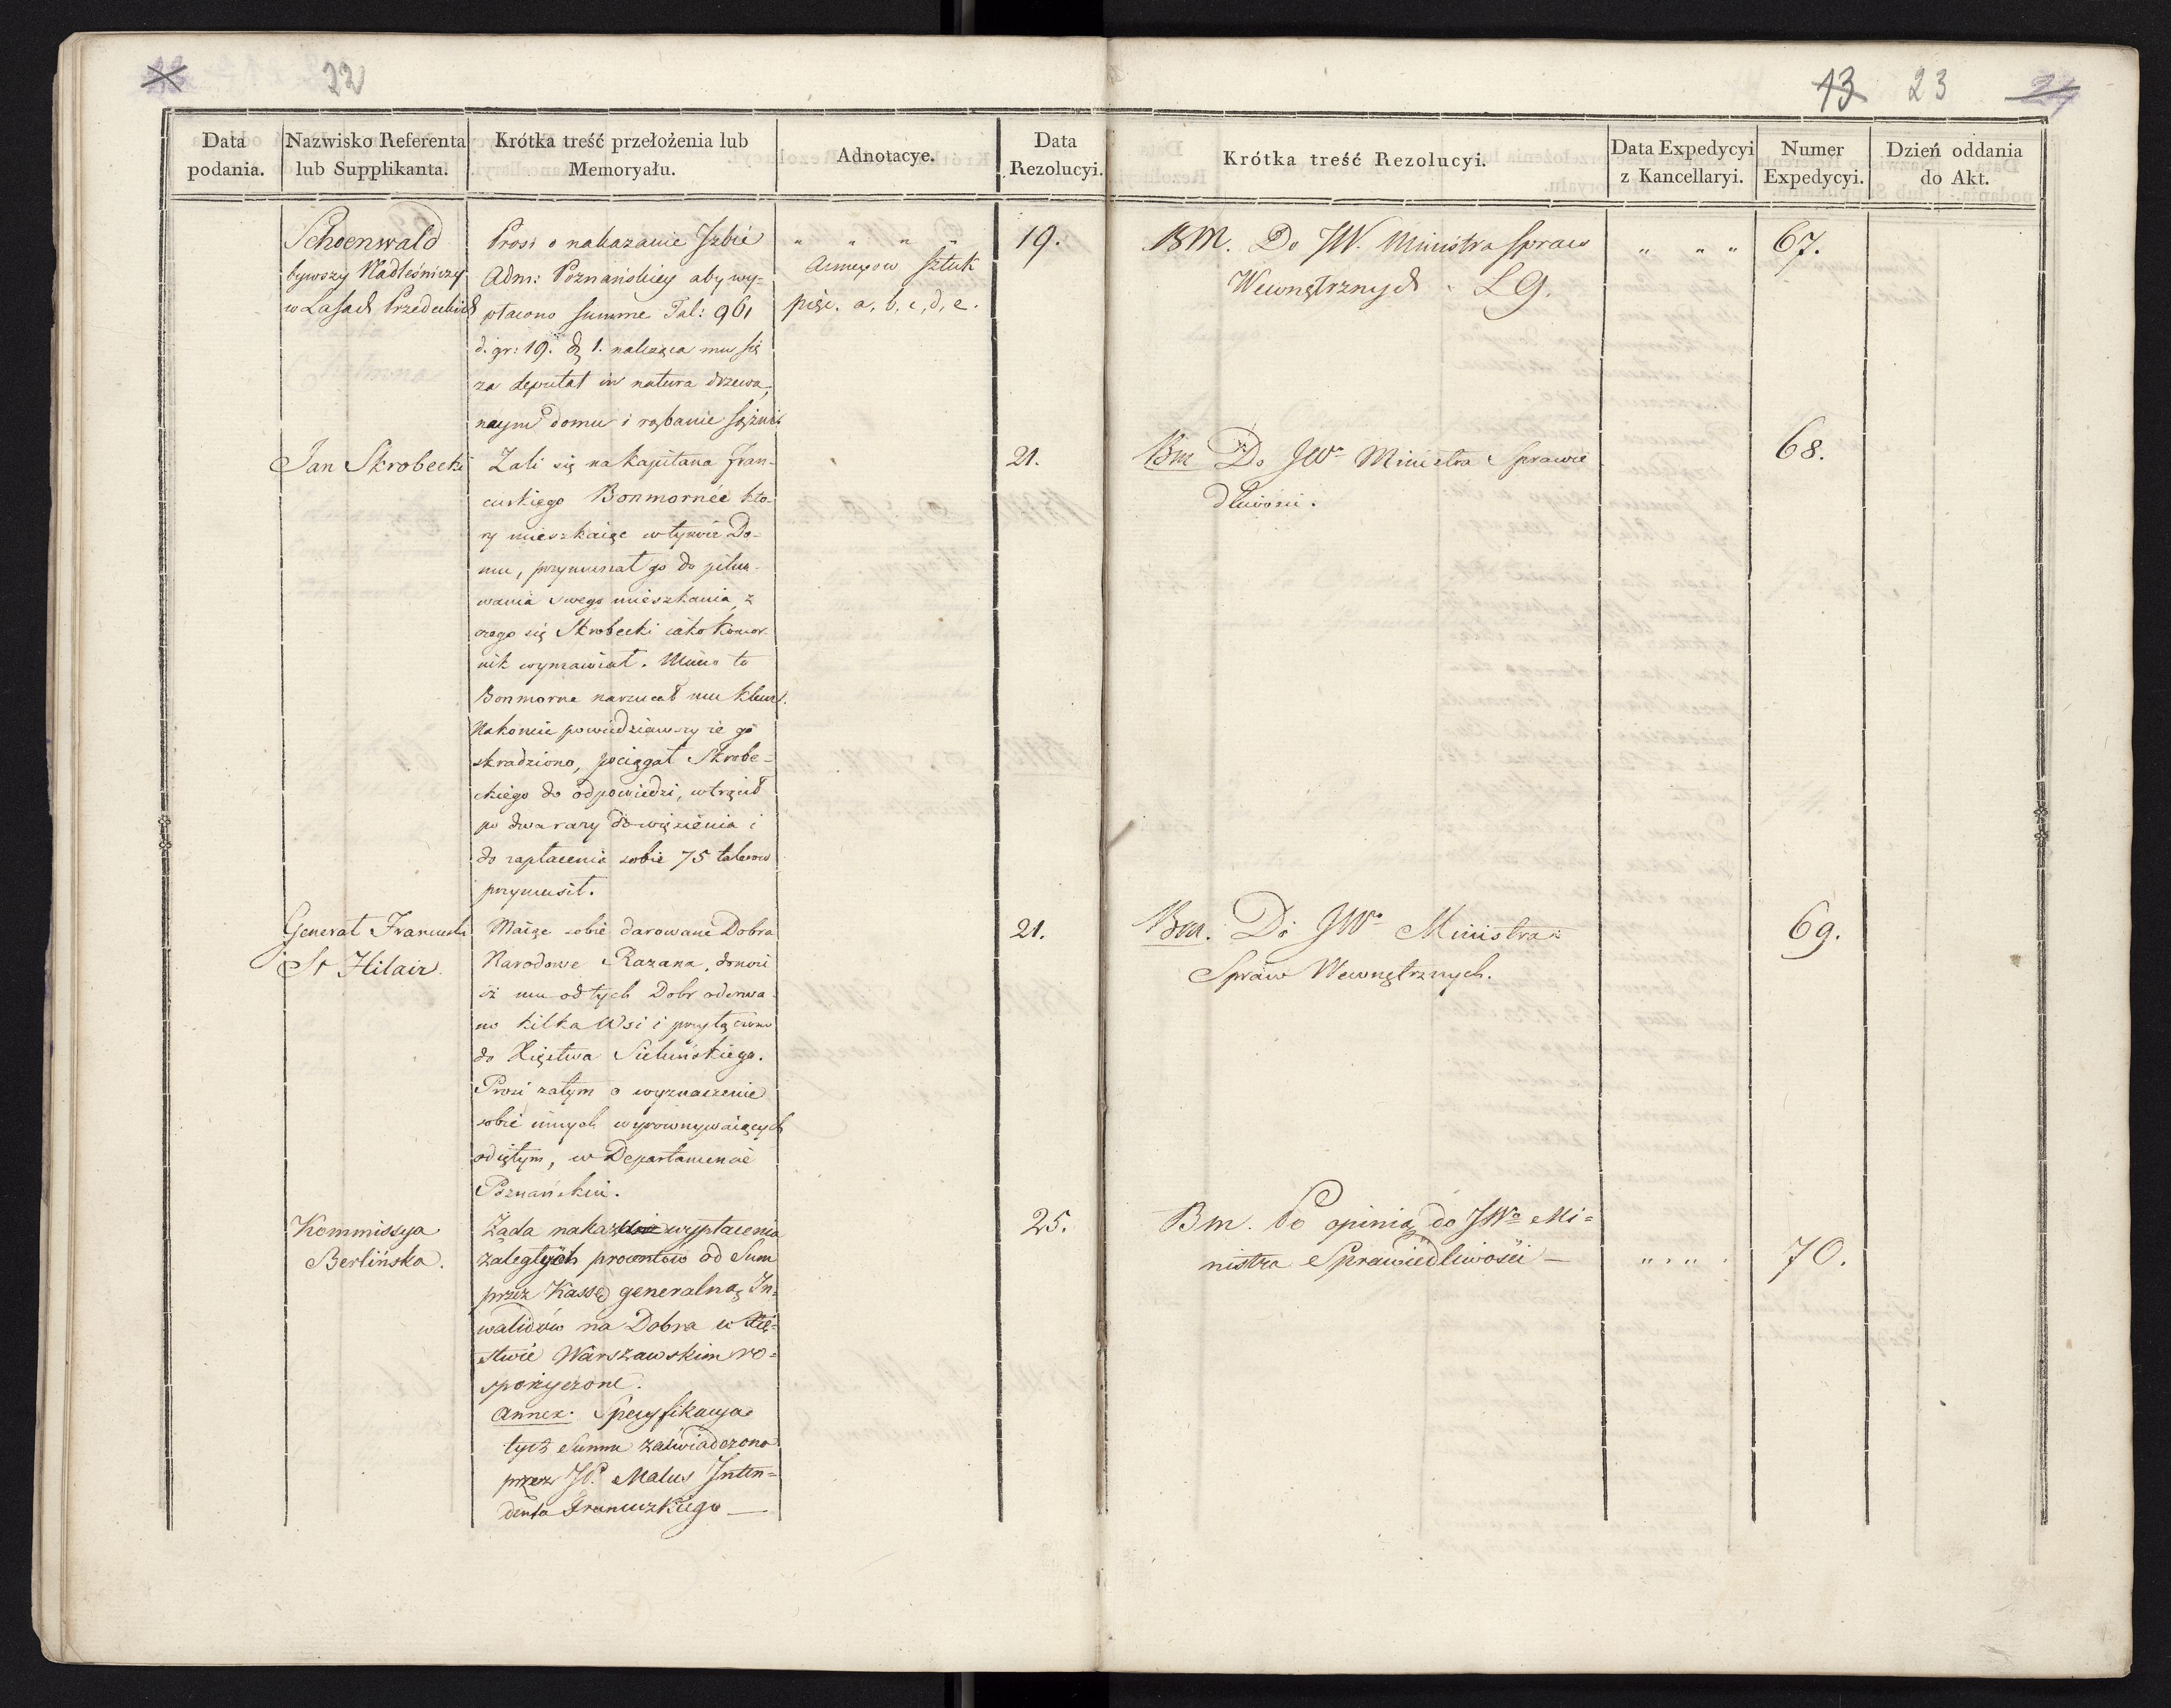 22
13 23 24
Data podania.
Nazwisko Referenta lub Supplikanta.
Krótka treść przełożenia lub Memoryału.
Adnotacye.
Data Rezolucyi.
Krótka treść Rezolucyi.
Data Expedycyi z Kancellaryi.
Numer Expedycyi.
Dzień oddania do Akt.
Schoenwald
bywszy Nadleśniczy
w Lasach
Prosi o nakazanie Jzbie
Adm: Poznańskiey aby wy-
płacono summe Tal: 961
d. gr: 19. 1. należąca mu się
za deputat in natura drzewa,
naym domu i rąbanie
" " " "
Annexow sztuk
pięć. a, b, c, d, e.
19.
BM. Do JW. Ministra Spraw
Wewnętrznych
" " "
67.
Jan Skrobecki
Żali się na kapitana Fran-
cuskiego Bonmornée kto-
ry mieszkaiąc w tymże Do-
mu, przymuszał go do pilno-
wania swego mieszkania, z
czego się Skrobecki iako komor-
nik wymawiał. Mimo to
Bonmorne narzucał mu klucz.
Nakoniec powiedziawszy że go
skradziono, pociągał Skrobe-
ckiego do odpowiedzi, wtrącił
po dwa razy do więzienia i
do zapłacenia sobie 75 talarow
przymusił.
21.
Bm Do JWo Ministra Sprawie
dliwości.
68.
Generał Francuski
St Hilair.
Maiąc sobie darowane Dobra
Narodowe Kazana, donosi
iż mu od tych Dobr oderwa-
no kilka Wsi i przyłączono
do Xięstwa Sieluńskiego.
Prosi zatym o wyznaczenie
sobie innych wyrownywaiących
odiętym, w Departamencie
Poznańskim.
21.
Bm. Do JWo Ministra
Spraw Wewnętrznych.
69.
Kommissya
Berlińska.
Żąda nakazu wypłacenia
zaległych prowentów od Sum
przez Kassę generalną In-
walidów na Dobra w Xię-
stwie Warszawskim ro-
spożyczone.
Annex. Specyfikacya
tych Summ zaświadczona
przez JP. Malus Inten-
denta Francuzkiego —
25.
Bm. Po opinią do JWo Mi=
nistra Sprawiedliwości —
" " "
70.